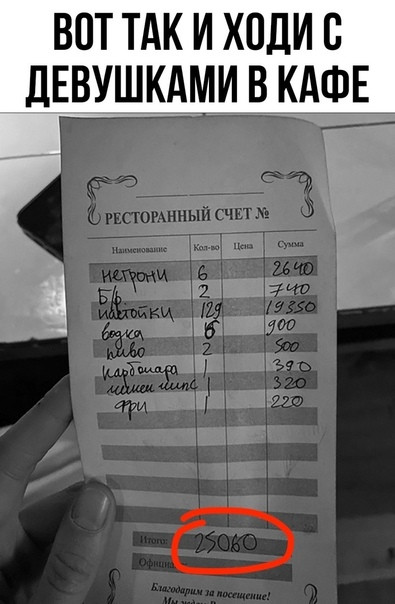 ВОТ ТАК И ХОДИ С
ДЕВУШКАМИ В КАФЕ
РЕСТОРАННЫЙ СЧЕТ №
Наименование Кол-во Цена Сумма
негрони 6 2640
Б/р. 2 740
настойки 129 19350
водка 6 900
пиво 2 500
карбонара 1 390
чикен чипс 1 320
фри 1 220
Итого: 25060
Официа
Благодарим за посещение!